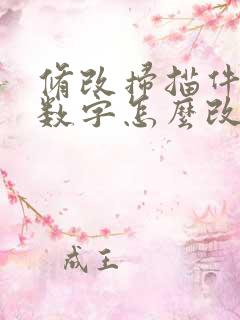 脩改掃描件
數字怎麼改
成王